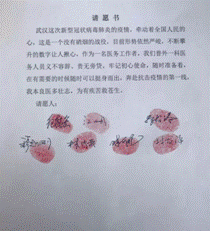 请愿书
武汉这次新型冠状病毒肺炎的疫情，牵动着全国人民的
心，这是一个没有硝烟的战役，目前形势依然严峻，不断攀
升的数字让人揪心，作为一名医务工作者，我们普外一科医
务人员义不容辞，责无旁贷，牢记初心使命，随时准备着，
在有需要的时候随时可以挺身而出，奔赴抗击疫情的第一线，
我本直医多壮志，为有疾苦救苍生。
请愿人：